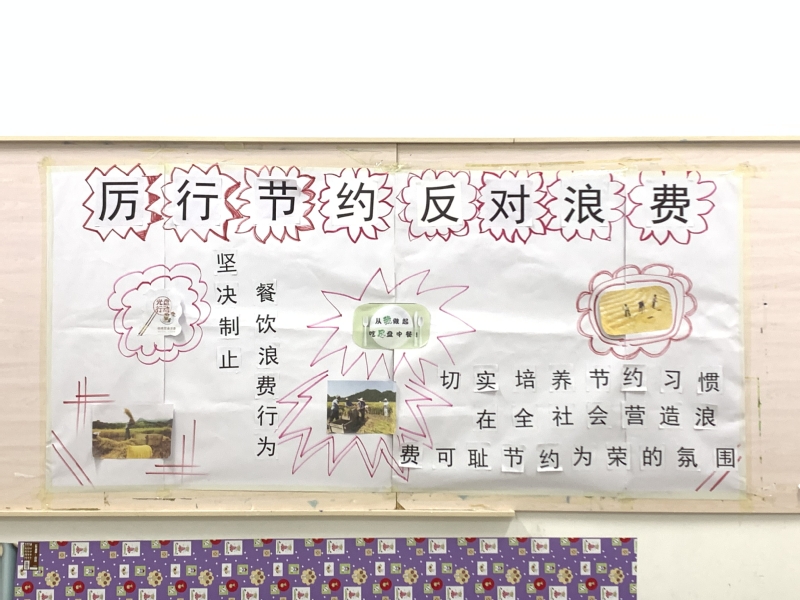 厉行节约反对浪费
坚决制止
餐饮浪费行为
光盘行动
从我做起
吃尽盘中餐!
切实培养节约习惯
在全社会营造浪
费可耻节约为荣的氛围